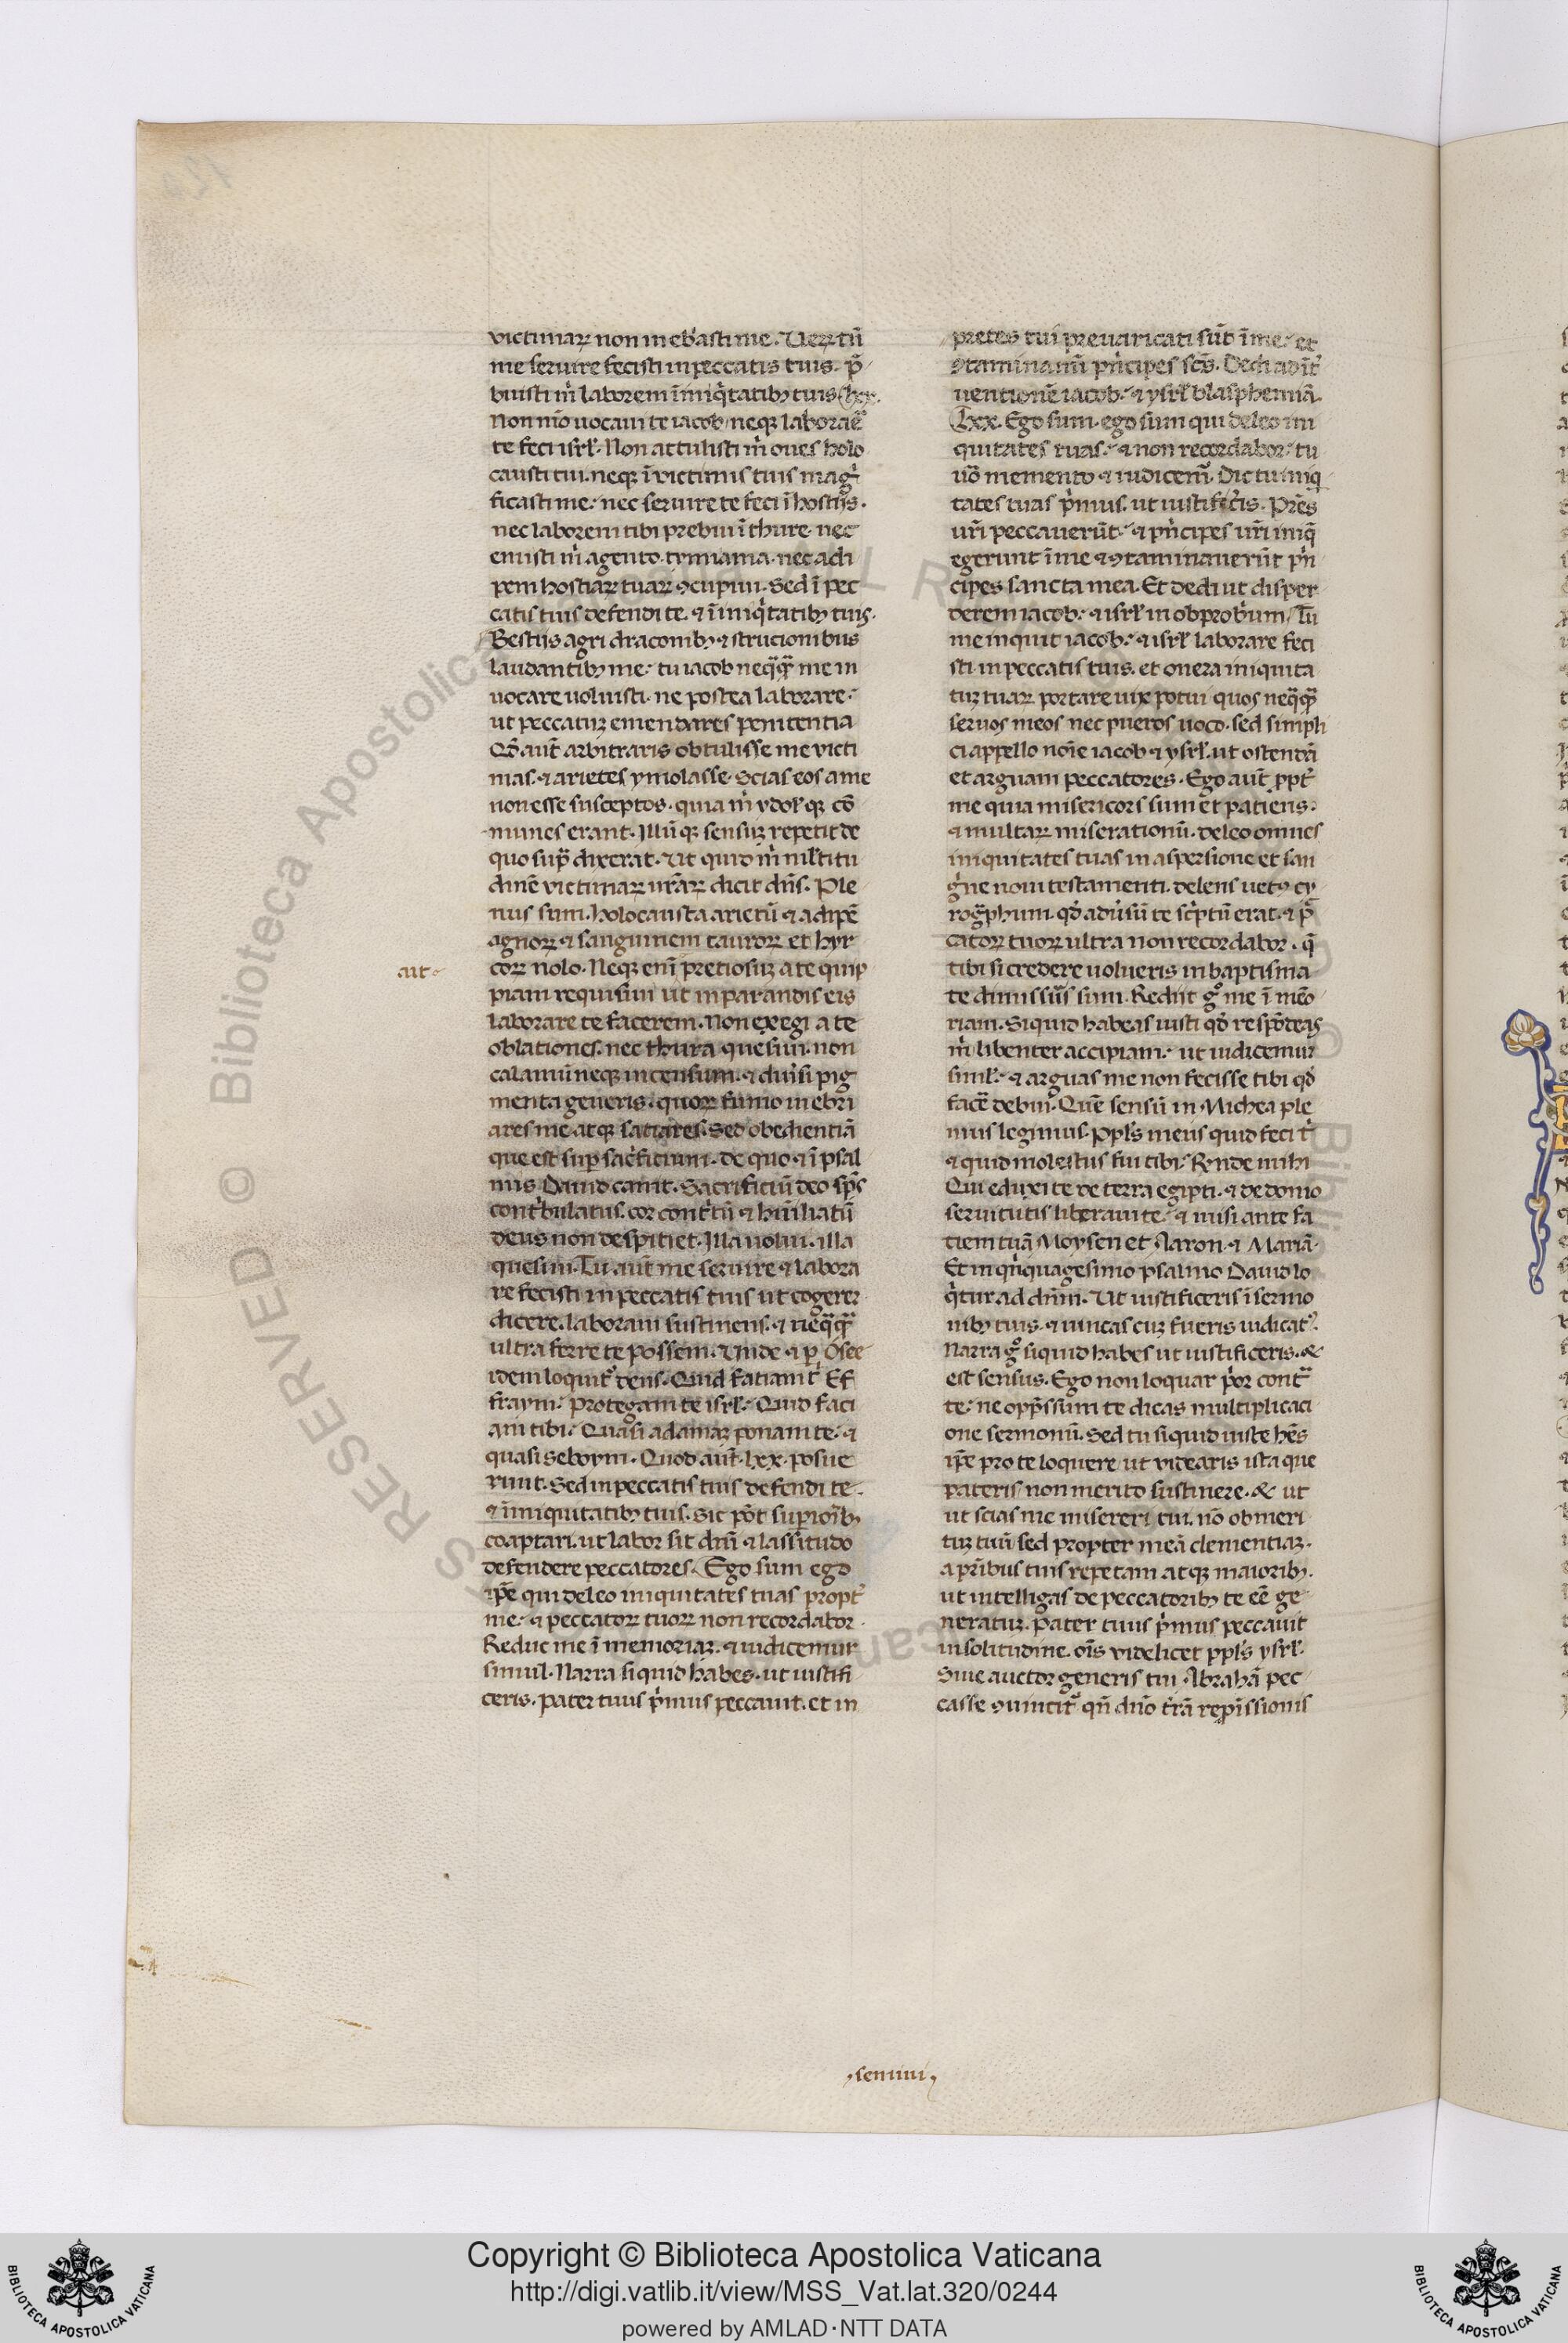 victimaꝝ non inebⁱasti me. Ueꝝtñ
me seruire fecisti in peccatis tuis. p̄
buisti m̄ laborem ī iniqⁱtatibꝫ tuis. lxx.
Non mō uocaui te iacob neqꝫ laboraē
te feci isrl̄. Non attulisti m̄ oues holo
causti tui. neqꝫ ī victimis tuis magⁱ
ficasti me. nec seruire te feci ī hostijs.
nec laborem tibi prebui ī thure. nec
emisti m̄ agento. tymiama. nec adi
pem hostiaꝝ tuaꝝ ꝯcupiui. Sed ī pec
catis tuis defendi te. ⁊ ī iniqⁱtatibꝫ tuis.
Bestijs agri draconibꝫ ⁊ strucionibus
laudantibꝫ me. tu iacob neq̄q̄ me in
uocare uoluisti. ne postea laborare.
ut peccatuꝫ emendares penitentia
Qđ aut̄ arbitraris obtulisse me victi
mas. ⁊ arietes ymolasse. Scias eos a me
non esse susceptos. quia m̄ ydol̄ qꝫ cō
munes erant. Illūqꝫ sensuꝫ repetit de
quo sup̄ dixerat. Ut quid m̄ ml̄titu
dinē victimaꝝ ur̄aꝝ dicit dn̄s. Ple
nus sum. holocausta arietū ⁊ adipē
agnoꝝ ⁊ sanguinem tauroꝝ et hyr
coꝝ nolo. Neqꝫ enī pretiosuꝫ a te quip
ait
piam requisiui ut in parandis eis
laborare te facerem. Non exegi a te
oblationes. nec thura quesiui. non
calamū neqꝫ incensum. ⁊ diu͛si pig
menta generis. quoꝝ fumo inebri
ares me atqꝫ satiares. Sed obedientiā
que est suꝑ sacⁱficium. de quo ⁊ ī psal
mis Dauid canit. Sacrificiū deo sp̄s
contⁱbulatus. cor contⁱtū ⁊ hūiliatū
deus non despitiet. Illa uolui. illa
quesiui. Tu aut̄ me seruire ⁊ labora
re fecisti in peccatis tuis ut cogerer
dicere. laboraui sustinens. ⁊ neq̄q̄
ultra ferre te possem. Unde ⁊ ꝑ Osee
idem loquit᷑ deus. Quid fatiam t̄ Ef
fraym. Protegam te isrl̄. Quid faci
am tibi. Quasi adamaꝫ ponam te. ⁊
quasi seboym. Quod aut̄. lxx. posue
runt. Sed in peccatis tuis defendi te.
⁊ ī iniquitatibꝫ tuis. Sic pōt superioribꝫ
coaptari. ut labor sit dn̄i ⁊ lassitudo
defendere peccatores. Ego sum ego
ip̄e qui deleo iniquitates tuas propt̄
me. ⁊ peccatoꝝ tuoꝝ non recordabor.
Reduc me ī memoriaꝫ. ⁊ iudicemur
simul. Narra si quid habes. ut iustifi
ceris. Pater tuus pⁱmus peccauit. et in
pretes tui preuaricati sūt ī me. et
ꝯtaminaui pⁱncipes scōs. Dedi ad īt̄
uentionē iacob. ⁊ ysrl̄ blasphemiā.
Lxx. Ego sum. ego sum qui deleo ini
quitates tuas. ⁊ non recordabor. tu
uō memento ⁊ iudicem᷑. Dic tu iniq
tates tuas pⁱmus. ut iustificeris. Pr̄es
ur̄i peccauerūt. ⁊ pⁱncipes ur̄i iniq̄
egerunt ī me ⁊ ꝯtaminauerūt pⁱn
cipes sancta mea. Et dedi ut disper
derem iacob. ⁊ isrl̄ in obprobⁱum. Tu
me inquit iacob. ⁊ isrl̄ laborare feci
sti in peccatis tuis. et onera iniquita
tuꝫ tuaꝝ portare uix potui quos neq̄q̄
seruos meos nec pueros uoco. sed simpli
ci appello noīe iacob ⁊ ysrl̄. ut ostendā
et arguam peccatores. Ego aut̄ ppt̄
me quia misericors sum et patiens.
⁊ multaꝝ miserationū. deleo omnes
iniquitates tuas in aspersione et san
gⁱne noui testamenti. delens uetꝰ cy
rogᵃphum. qđ adu͛sū te scⁱptū erat. ⁊ p̄
catoꝝ tuoꝝ ultra non recordabor. q̄
tibi si credere uolueris in baptisma
te dimissurus sum. Reduc gͦ me ī mēo
riam. Si quid habeas iusti qđ respōdeas
m̄ libenter accipiam. ut iudicemur
simul̄. ⁊ arguas me non fecisse tibi qđ
facē debui. Quē sensū in Michea ple
nius legimus. Ppl̄s meus quid feci t̄
⁊ quid molestus fui tibi. Rn̄de mihi
Qui eduxi te de terra egipti. ⁊ de domo
seruitutis liberaui te. ⁊ misi ante fa
tiem tuā Moysen et Aaron. ⁊ Mariā.
Et in qⁱnquagesimo psalmo Dauid lo
qⁱtur ad dn̄m. Ut iustificeris ī sermo
nibꝫ tuis. ⁊ uincas cuꝫ fueris iudicatꝰ.
Narra gͦ si quid habes ut iustificeris. &
est sensus. Ego non loquar pⁱor contᵃ
te. ne opp̄ssum te dicas multiplicaci
one sermonū. Sed tu si quid iuste hēs
ip̄e pro te loquere ut videaris ista que
pateris non merito sustinere. & ut
ut scias me misereri tui. nō ob meri
tuꝫ tuū sed propter meā clementiaꝫ.
a pr̄ibus tuis repetam atqꝫ maioribꝫ.
ut intelligas de peccatoribꝫ te eē ge
neratuꝫ. Pater tuus pⁱmus peccauit
in solitudine. oīs videlicet ppl̄s ysrl̄.
Siue auctor generis tui. Abrahā pec
casse ꝯuincit᷑ qn̄ dn̄o t̄rā repⁱssionis
semini
© Biblioteca Apostolica
RESERVED
Copyright © Biblioteca Apostolica Vaticana
http://digi.vatlib.it/view/MSS_Vat.lat.320/0244
powered by AMLAD·NTT DATA
BIBLIOTECA APOSTOLICA VATICANA
BIBLIOTECA APOSTOLICA VATICANA